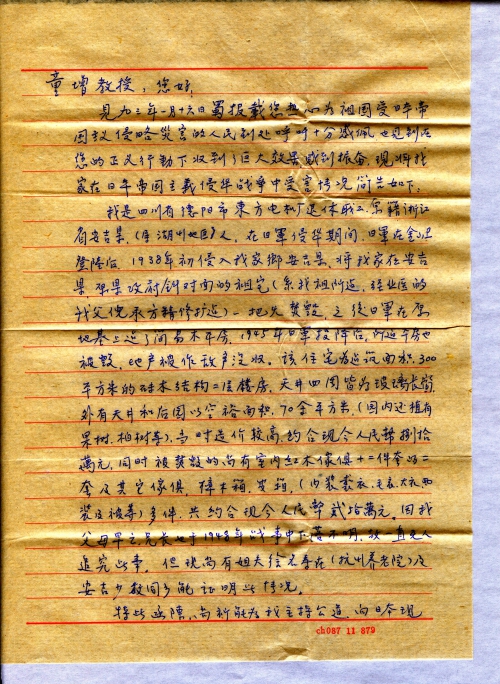 童增教授,您好,
见九三年一月十六日蜀报载您热心为祖国受日帝
国主义侵略受害的人民到处呼吁十分感佩,也
您的正义行动下收到了巨大效果感到振奋,现将我
家在日本帝国主义侵华战争中受害情况简告如下,
我是四川省德阳市东方电机厂退休职工,原籍浙江
省安吉县,(属湖州地区)人,在日军侵华期间,日军在金山卫
登陆后,1938年初侵入我家乡安吉县,将我家在安吉
县原县政府斜对面的祖宅(系我祖所造,
我父倪承方精修扩造)一把火焚毁,之后日军在原
地基上造了间易木平房,1945年日军投降后,所造平房也
被毁,地产被作敌产没收。该住宅为建筑面积300
平方米的砖木结构二层楼房,天井四周皆为玻璃长窗,
外有天井和后园以空 面积,70余平方米,(园内还植有
果树,柏树等),当时造价较高,约合现今人民币捌拾
万元,同时被焚毁的尚有室内红木傢俱十二件套的二
套及其它傢俱,樟木箱,皮箱,(内装裘衣,毛衣,大衣,西
装及被等)多件,共约合现今人民币贰拾万元,因我
父母早亡,兄长也于1948年战争中下落不明,故一直无人
追究此事,但现尚有姐夫徐元春在(杭州养老院)及
安吉少数同乡能证明此情况。
特此函陈,尚祈能为我主持公道,向日本现
ch087 11 879